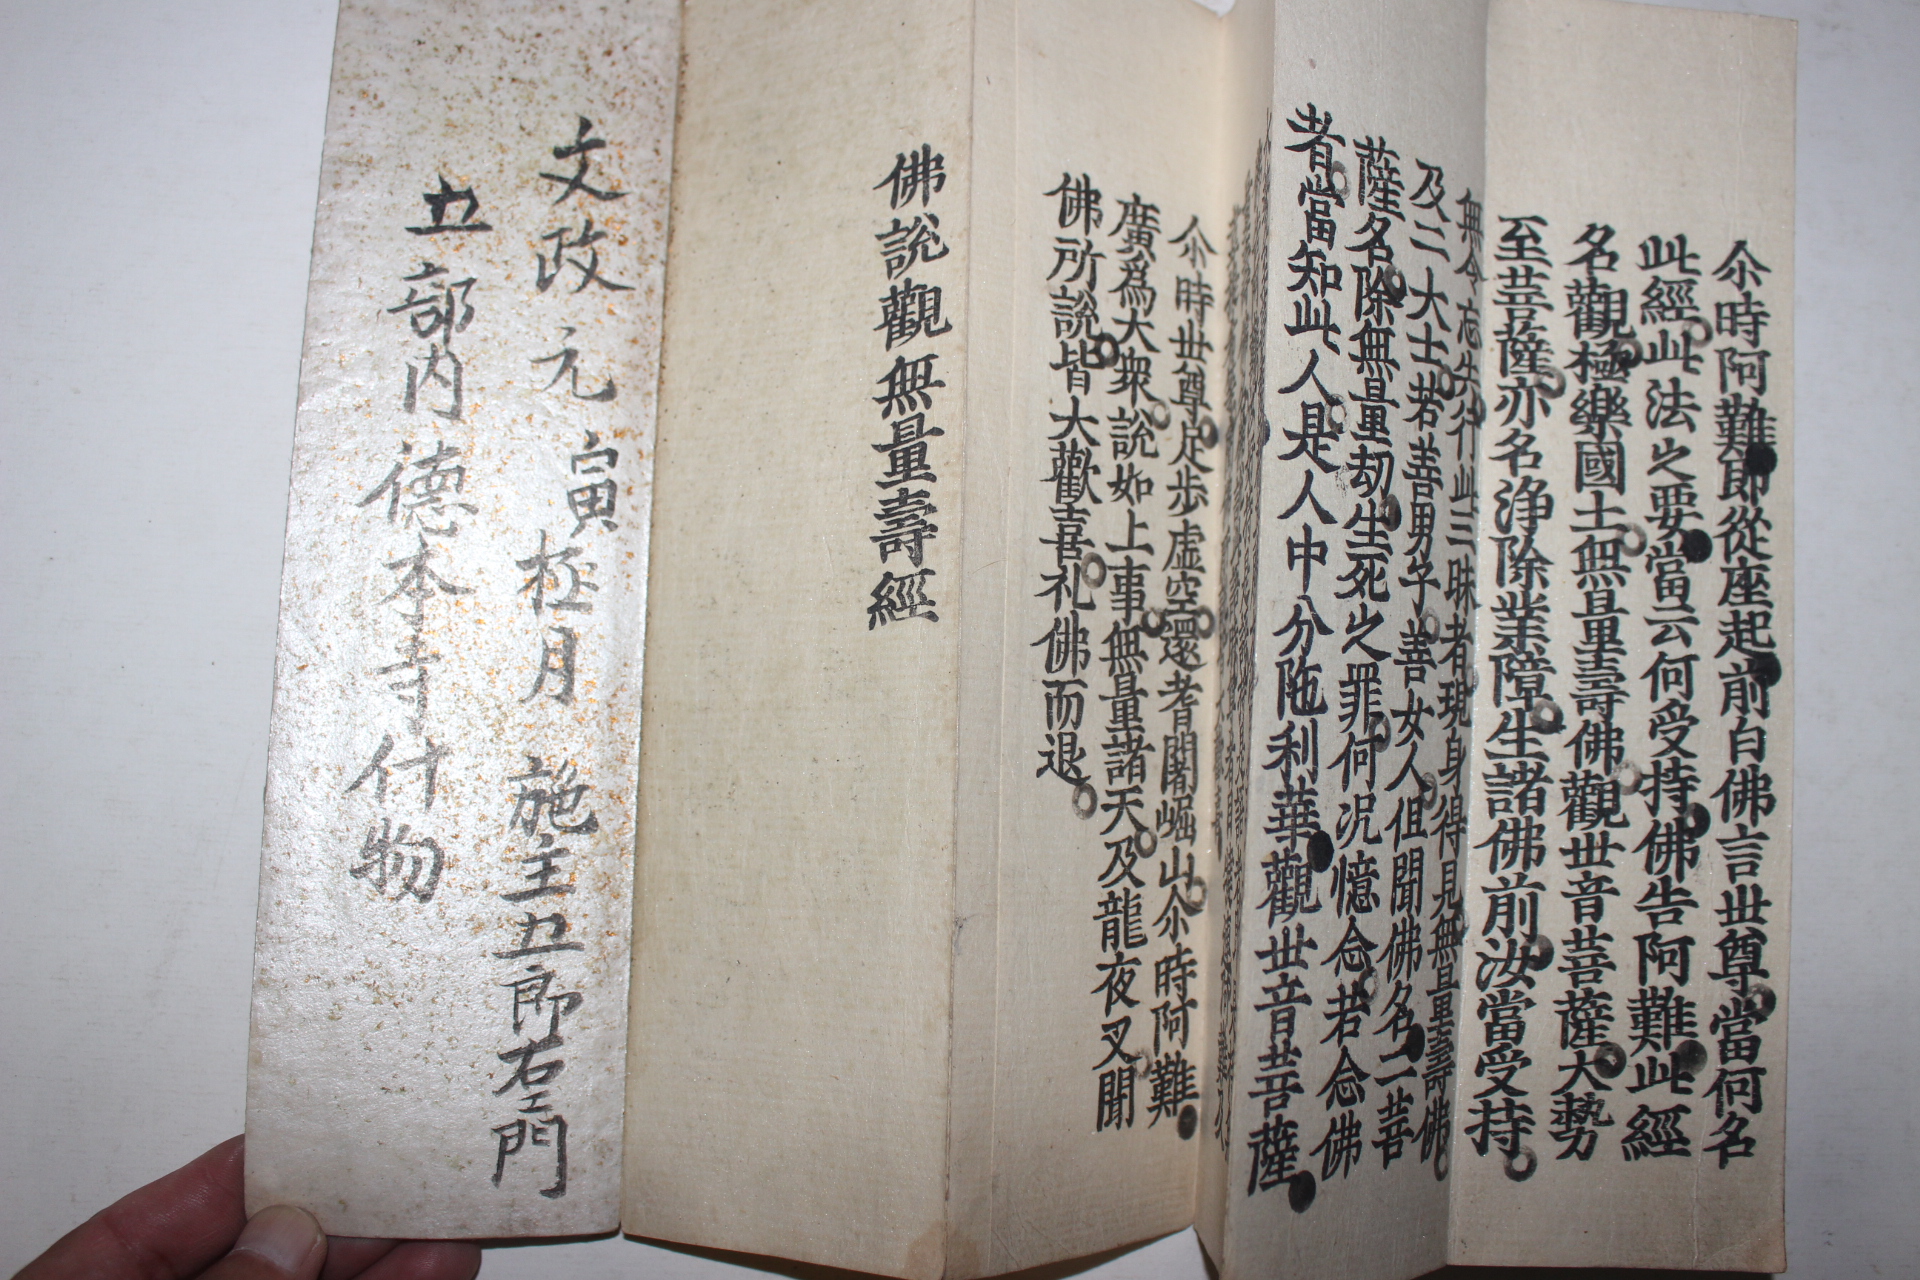 尒時阿難即從座起前白佛言世尊當何名
此經此法之要當云何受持佛告阿難此經
名觀極樂國土無量壽佛觀世音菩薩大勢
至菩薩亦名浄除業障生諸佛前汝當受持
無令忘失行此三昧者現身得見無量壽佛
及二大士若善男子善女人但聞佛名二菩
薩名除無量劫生死之罪何况憶念若念佛
者當知此人是人中分陁利華觀世音菩薩
尒時世尊足步虚空還耆闍崛山尒時阿難
廣爲大衆說如上事無量諸天及龍夜叉聞
佛所說皆大歡喜礼佛而退
佛說觀無量壽經
文政元寅極月 施主五郎右エ門
五部内 德本寺什物